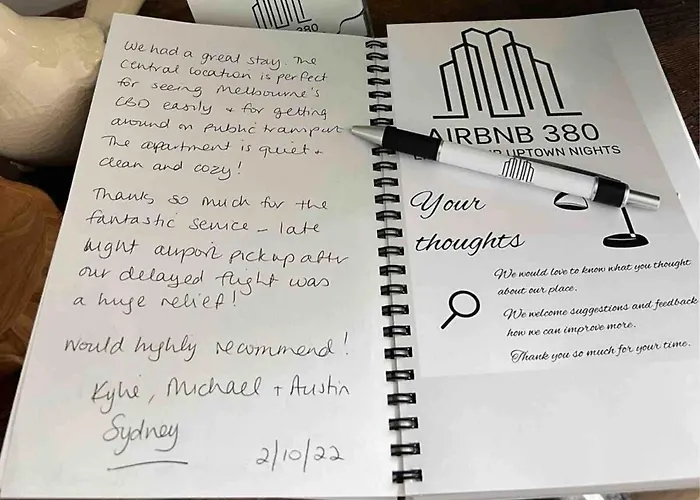 We had a great stay. The
central location is perfect
for seeing Melbourne's
CBD easily + for getting
around on public transport
The apartment is quiet +
clean and cozy!
Thanks so much for the
fantastic service - late
night airport pickup after
our delayed flight was
a huge relief!
Would highly recommend!
Kylie, Michael + Austin
Sydney
2/10/22
380
AIRBNB 380
UPTOWN NIGHTS
Your
thoughts
We would love to know what you thought
about our place.
We welcome suggestions and feedback
how we can improve more.
Thank you so much for your time.